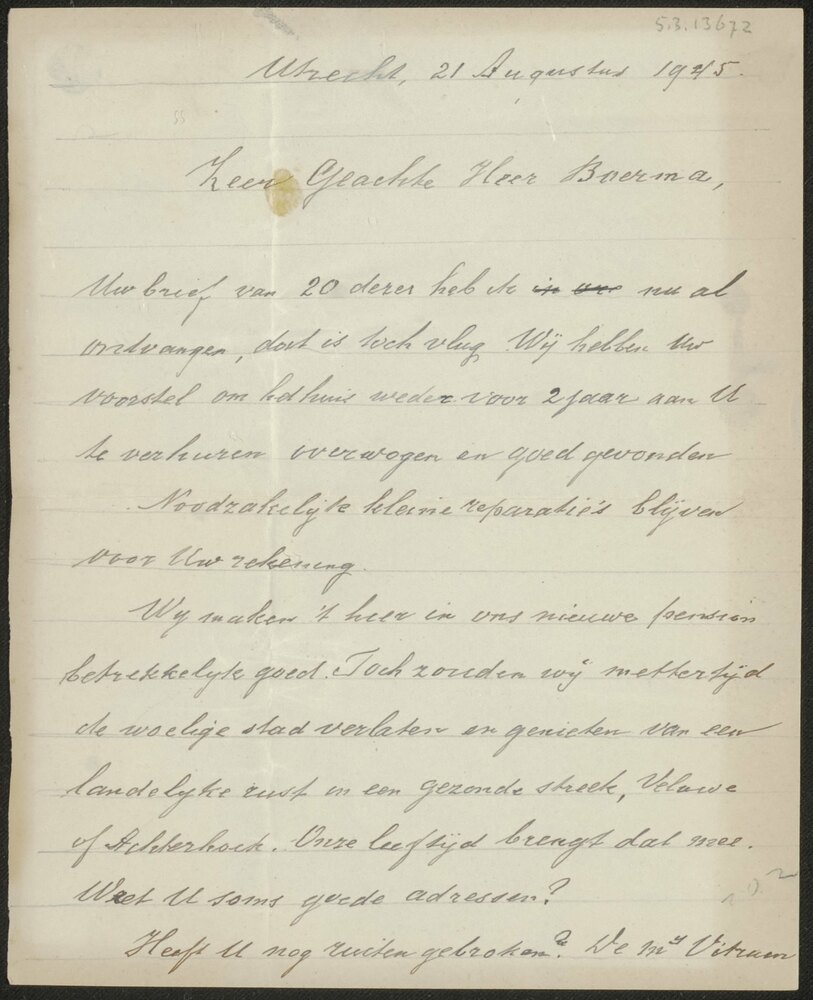 5.3.13672
Utrecht, 21 Augustus 1945.
Zeer Geachte Heer Boerma,
Uw brief van 20 dezer heb ik in nu al
ontvangen, dat is toch vlug. Wij hebben Uw
voorstel om het huis weder voor 2 jaar aan U
te verhuren overwogen en goed gevonden
Noodzakelijke kleine reparatie's blijven
voor Uw rekening.
Wij maken 't hier in ons nieuwe pension
betrekkelijk goed. Toch zouden wij mettertijd
de woelige stad verlaten en genieten van een
landelijke rust in een gezonde streek, Veluwe
of Achterhoek. Onze leeftijd brengt dat mee.
Weet U soms goede adressen?
Heeft U nog ruiten gebroken? De Mij Vitrum